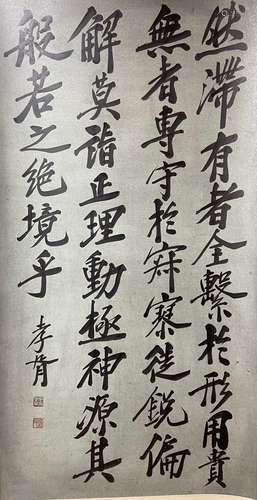 然滯有者全繫於形用貴
無者專守於寂寞徒銳偏
解莫詣正理動極神源其
般若之絕境乎
孝胥